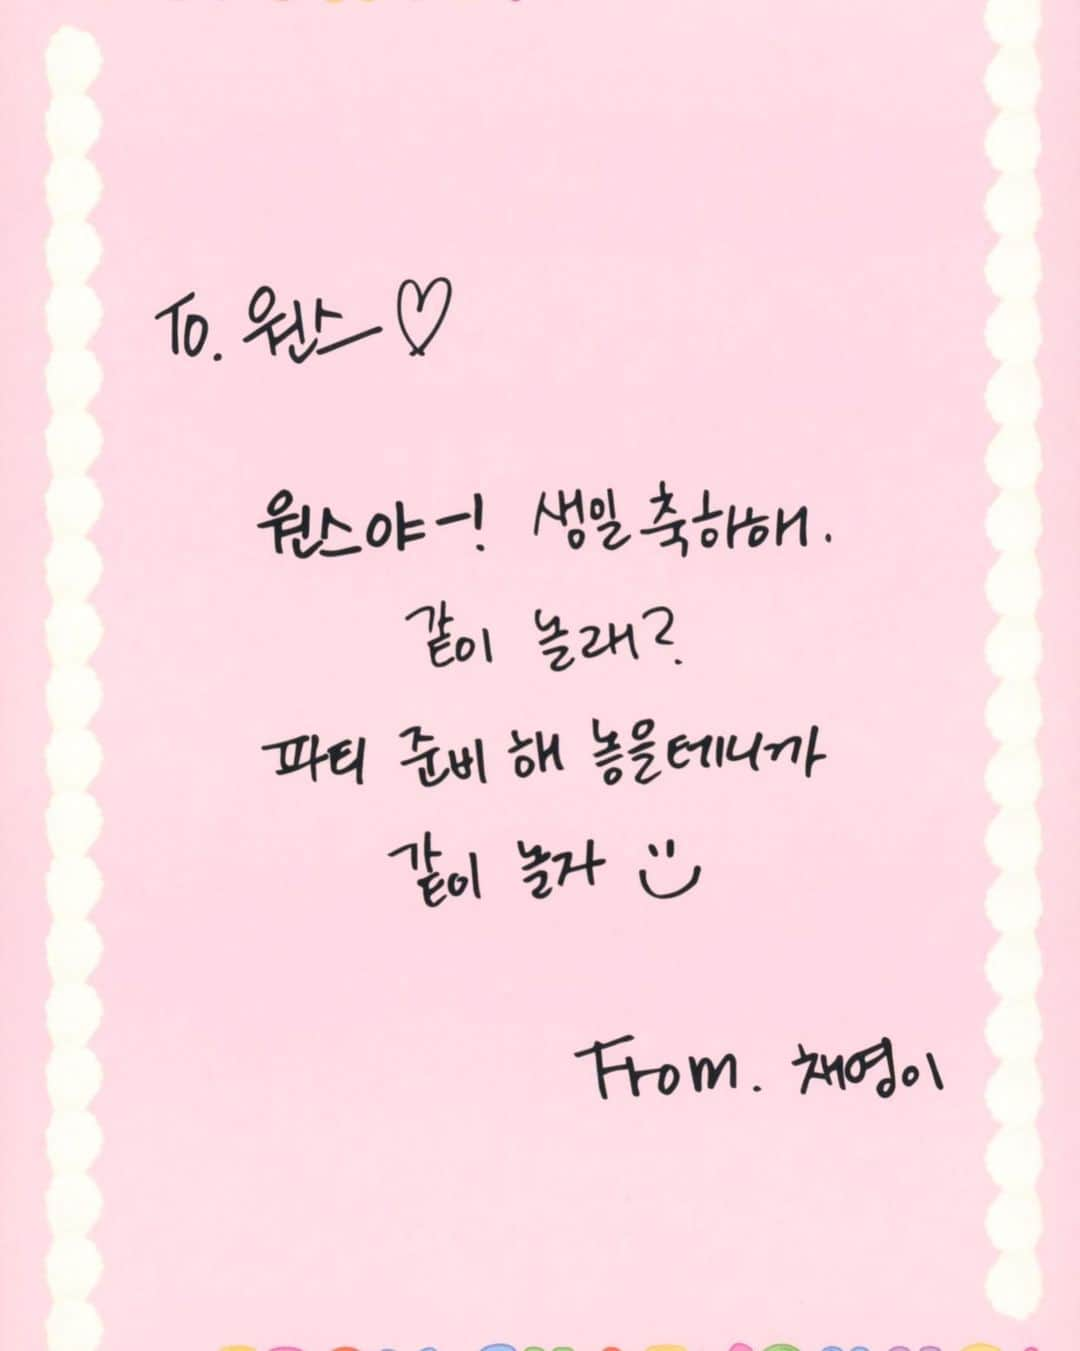 To. 원스♡
원스야-! 생일 축하해.
같이 놀래?
파티 준비 해 놓을테니까
같이 놀자 :)
From. 채영이